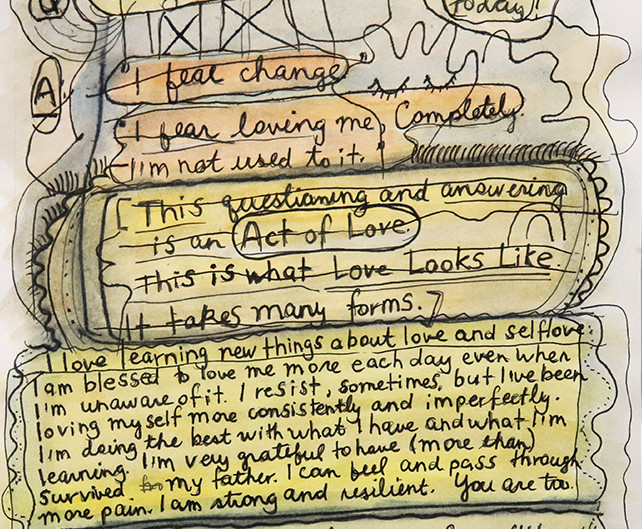 Q
today!
A.
"I fear change"
"I fear loving me, Completely.
I'm not used to it.
[This questioning and answering
is an Act of Love.
This is what Love Looks Like.
It takes many forms.]
I love learning new things about love and selflove.
I am blessed to love me more each day even when
I'm unaware of it. I resist, sometimes, but I've been
loving myself more consistently and imperfectly.
I'm doing the best with what I have and what I'm
learning. I'm very grateful to have (more than)
survived my father. I can feel and pass through
more pain. I am strong and resilient. You are too.